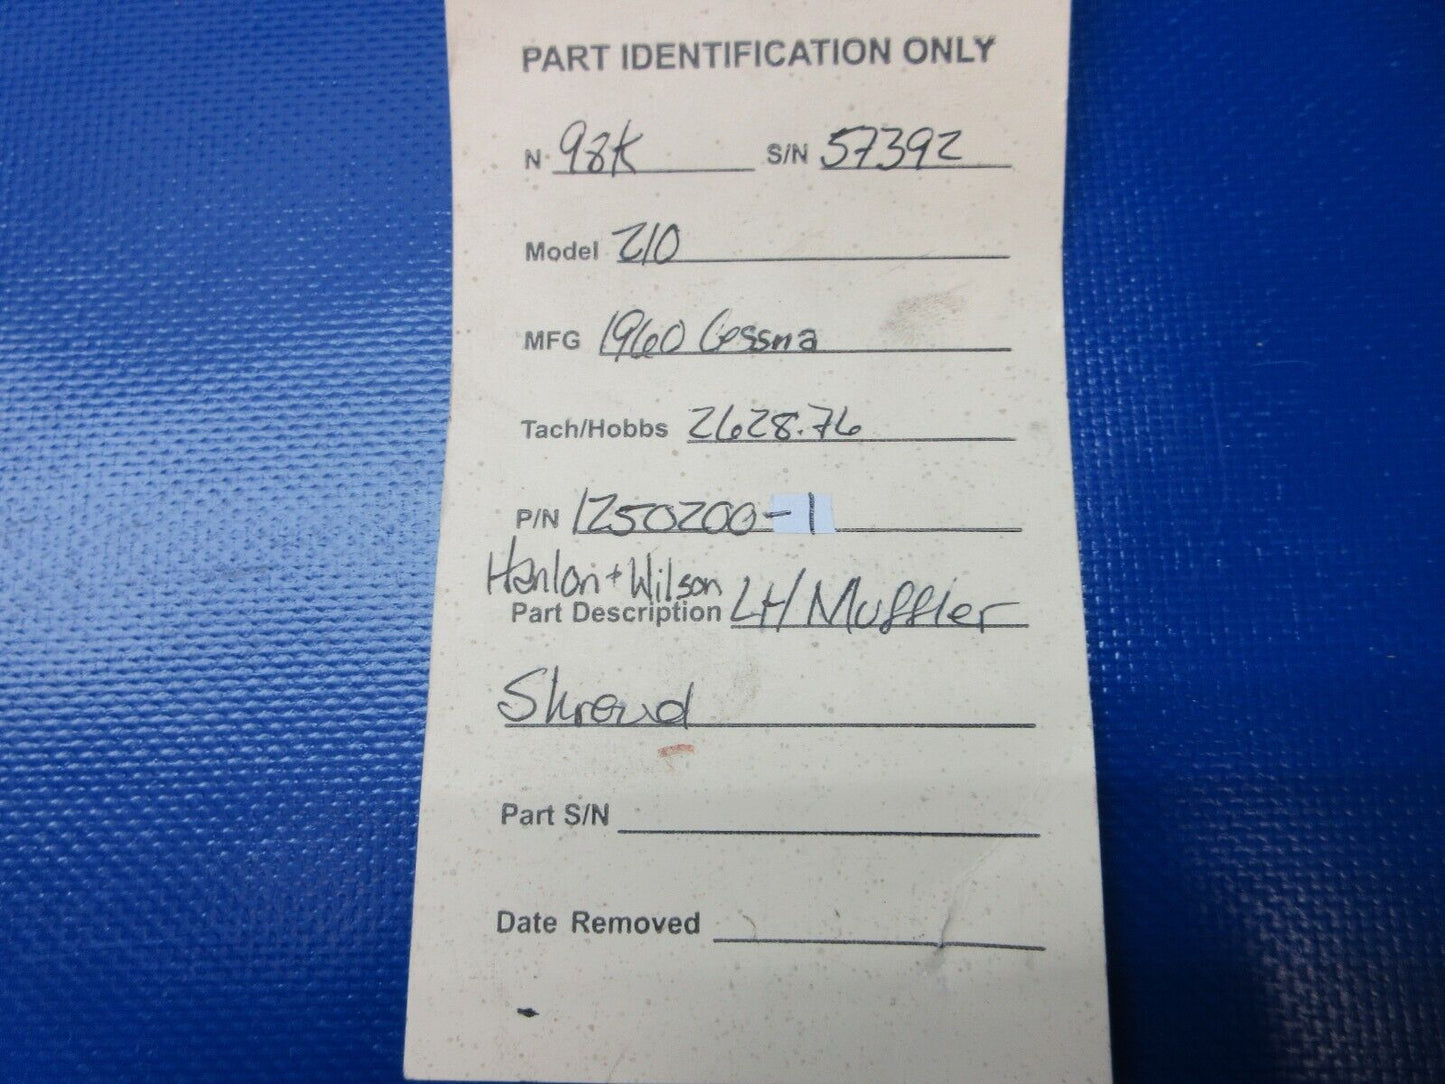 PART IDENTIFICATION ONLY
N 98K S/N 57392
Model 210
MFG 1960 Cessna
Tach/Hobbs 2628.76
P/N 1250200-1
Hanlon + Wilson
Part Description LH Muffler
Shroud
Part S/N
Date Removed